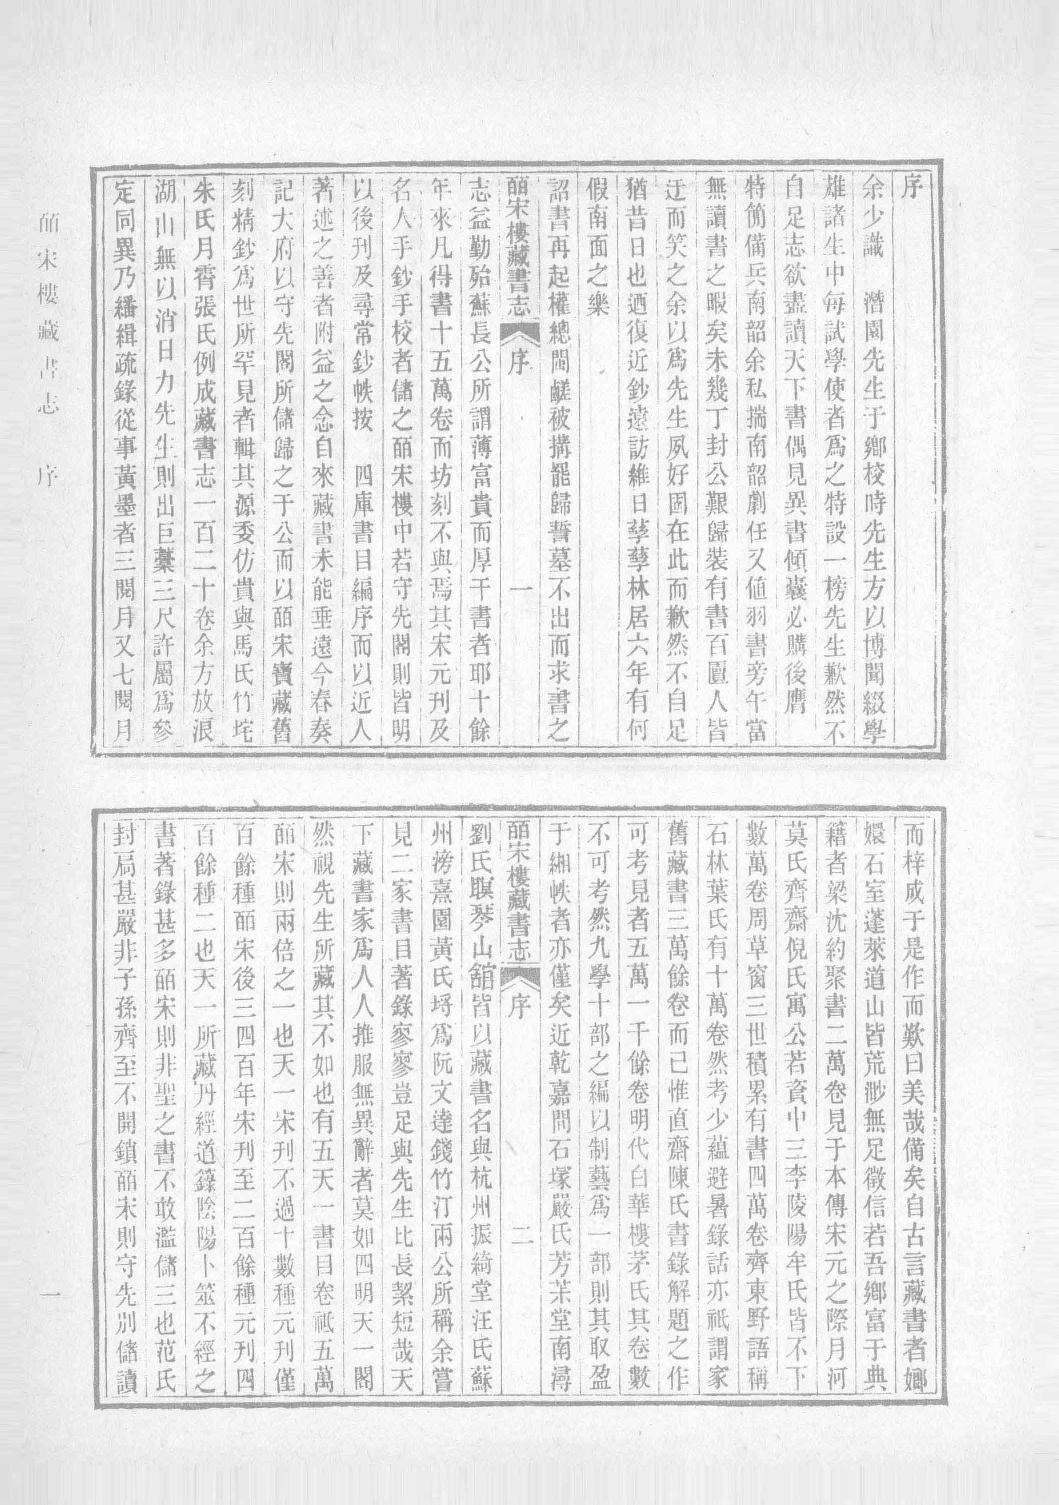 序
余少識　潛園先生于鄉校時先生方以博聞綴學
雄諸生中每試學使者爲之特設一榜先生歉然不
自足志欲盡讀天下書偶見異書傾囊必購後膺
特簡備兵南韶余私揣南韶劇任又値羽書旁午當
無讀書之暇矣未幾丁封公艱歸裝有書百匱人皆
迂而笑之余以爲先生夙好固在此而歉然不自足
猶昔日也迺復近鈔遠訪維日孳孳林居六年有何
假南面之樂
詔書再起權總閩鹺被搆罷歸誓墓不出而求書之
皕宋樓藏書志 序 一
志益勤殆蘇長公所謂薄富貴而厚于書者耶十餘
年來凡得書十五萬卷而坊刻不與焉其宋元刊及
名人手鈔手校者儲之皕宋樓中若守先閣則皆明
以後刊及尋常鈔帙按　四庫書目編序而以近人
著述之善者附益之念自來藏書未能垂遠今春奏
記大府以守先閣所儲歸之于公而以皕宋寶藏舊
刻精鈔爲世所罕見者輯其源委仿貴與馬氏竹垞
朱氏月霄張氏例成藏書志一百二十卷余方放浪
湖山無以消日力先生則出巨藁三尺許屬爲參
定同異乃繙緝疏錄從事黃墨者三閱月又七閱月
而梓成于是作而歎曰美哉備矣自古言藏書者嫏
嬛石室蓬萊道山皆荒渺無足徵信若吾鄉富于典
籍者梁沈約聚書二萬卷見于本傳宋元之際月河
莫氏齊齋倪氏寓公若資中三李陵陽牟氏皆不下
數萬卷周草窗三世積累有書四萬卷齊東野語稱
石林葉氏有十萬卷然考少蘊避暑錄話亦祇謂家
舊藏書三萬餘卷而已惟直齋陳氏書錄解題之作
可考見者五萬一千餘卷明代白華樓茅氏其卷數
不可考然九學十部之編以制藝爲一部則其取盈
于緗帙者亦僅矣近乾嘉間石塚嚴氏芳茮堂南潯
皕宋樓藏書志 序 二
劉氏瞑琴山館皆以藏書名與杭州振綺堂汪氏蘇
州滂熹園黃氏埒爲阮文達錢竹汀兩公所稱余嘗
見二家書目著錄寥寥豈足與先生比長絜短哉天
下藏書家爲人人推服無異辭者莫如四明天一閣
然視先生所藏其不如也有五天一書目卷祗五萬
皕宋則兩倍之一也天一宋刊不過十數種元刊僅
百餘種皕宋後三四百年宋刊至二百餘種元刊四
百餘種二也天一所藏丹經道籙陰陽卜筮不經之
書著錄甚多皕宋則非聖之書不敢濫儲三也范氏
封扃甚嚴非子孫齊至不開鎖皕宋則守先別儲讀
皕宋樓藏書志　序
一